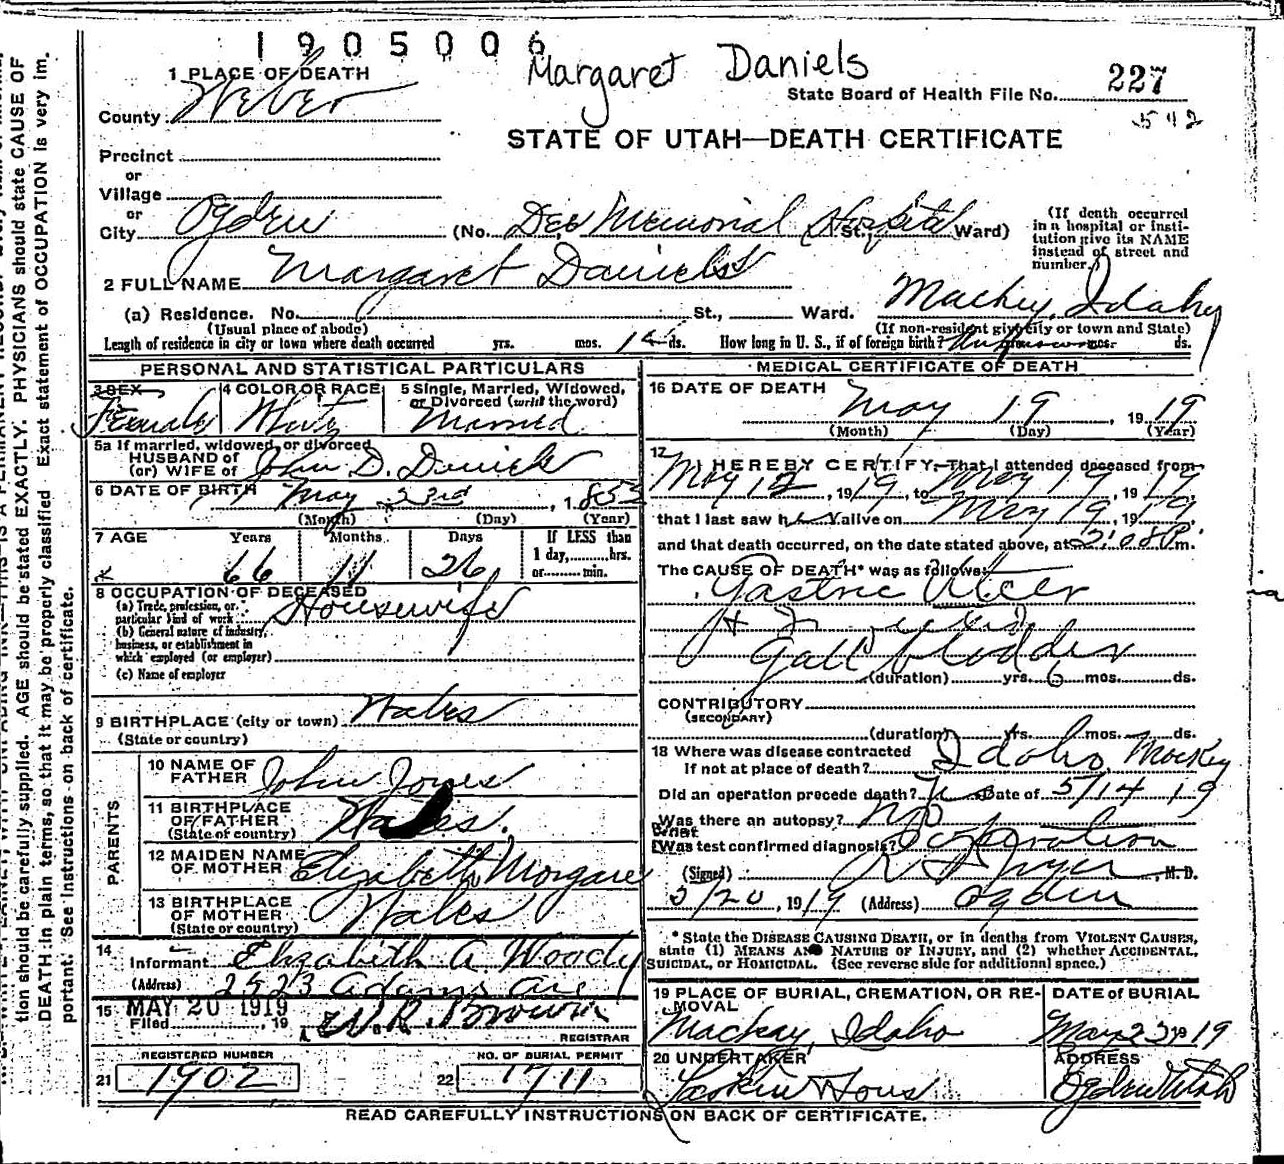 1905006
Margaret Daniels
227
State Board of Health File No.
542
STATE OF UTAH—DEATH CERTIFICATE
1 PLACE OF DEATH
County Weber
Precinct
or
Village
or
City Ogden (No. Dee Memorial Hospital St. Ward)
(If death occurred in a hospital or institution give its NAME instead of street and number.)
2 FULL NAME Margaret Daniels
(a) Residence. No. St., Ward. Mackey, Idaho
(Usual place of abode) (If non-resident give city or town and State)
Length of residence in city or town where death occurred yrs. mos. ds. How long in U. S., if of foreign birth? mos. ds.
PERSONAL AND STATISTICAL PARTICULARS
3 SEX 4 COLOR OR RACE 5 Single, Married, Widowed,
or Divorced (write the word)
Female White Married
5a If married, widowed, or divorced
HUSBAND of
(or) WIFE of John D. Daniels
6 DATE OF BIRTH May 23rd, 1852
(Month) (Day) (Year)
7 AGE Years Months Days If LESS than
1 day, hrs.
or min.
66 11 26
8 OCCUPATION OF DECEASED
(a) Trade, profession, or
particular kind of work Housewife
(b) General nature of industry,
business, or establishment in
which employed (or employer)
(c) Name of employer
9 BIRTHPLACE (city or town) Wales
(State or country)
PARENTS
10 NAME OF
FATHER John Jones
11 BIRTHPLACE
OF FATHER Wales.
(State or country)
12 MAIDEN NAME
OF MOTHER Elizabeth Morgan
13 BIRTHPLACE
OF MOTHER Wales
(State or country)
14
Informant Elizabeth A Woody
(Address) 2523 Adams Ave
15 MAY 20 1919
Filed , 19 W.R. Brown
REGISTRAR
REGISTERED NUMBER NO. OF BURIAL PERMIT
21 1902 22 1711
MEDICAL CERTIFICATE OF DEATH
16 DATE OF DEATH
May 19 1919
(Month) (Day) (Year)
17
I HEREBY CERTIFY, That I attended deceased from
May 12, 1919, to May 19, 1919
that I last saw h alive on May 19, 1919
and that death occurred, on the date stated above, at 2:08 P m.
The CAUSE OF DEATH* was as follows:
Gastric Ulcer
Gall bladder
(duration) yrs. 6 mos. ds.
CONTRIBUTORY
(SECONDARY)
(duration) yrs. mos. ds.
18 Where was disease contracted
If not at place of death? Idaho Mackey
Did an operation precede death? Date of 5/14 19
Was there an autopsy? No
What
Was test confirmed diagnosis? Operation
(Signed) , M. D.
5/20, 1919 (Address) Ogden
* State the DISEASE CAUSING DEATH, or in deaths from VIOLENT CAUSES,
state (1) MEANS AND NATURE OF INJURY, and (2) whether ACCIDENTAL,
SUICIDAL, or HOMICIDAL. (See reverse side for additional space.)
19 PLACE OF BURIAL, CREMATION, OR REMOVAL DATE of BURIAL
Mackay, Idaho May 23 1919
20 UNDERTAKER ADDRESS
Larkin Ogden Utah
READ CAREFULLY INSTRUCTIONS ON BACK OF CERTIFICATE.
tion should be carefully supplied. AGE should be stated EXACTLY. PHYSICIANS should state CAUSE OF
DEATH in plain terms, so that it may be properly classified. Exact statement of OCCUPATION is very im-
portant. See instructions on back of certificate.